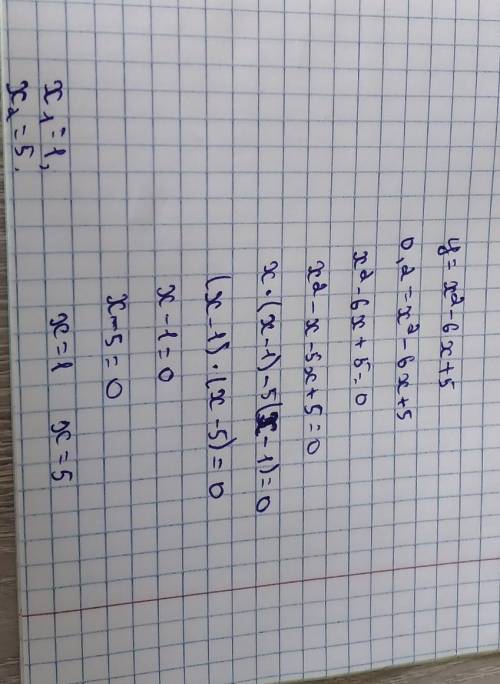 y = x² - 6x + 5
0,2 = x² - 6x + 5
x² - 6x + 5 = 0
x² - x - 5x + 5 = 0
x · (x - 1) - 5(x - 1) = 0
(x - 1) · (x - 5) = 0
x - 1 = 0
x - 5 = 0
x = 1 x = 5
x₁ = 1,
x₂ = 5.